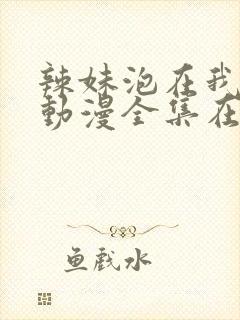 辣妹泡在我
動漫全集在
鱼戲水